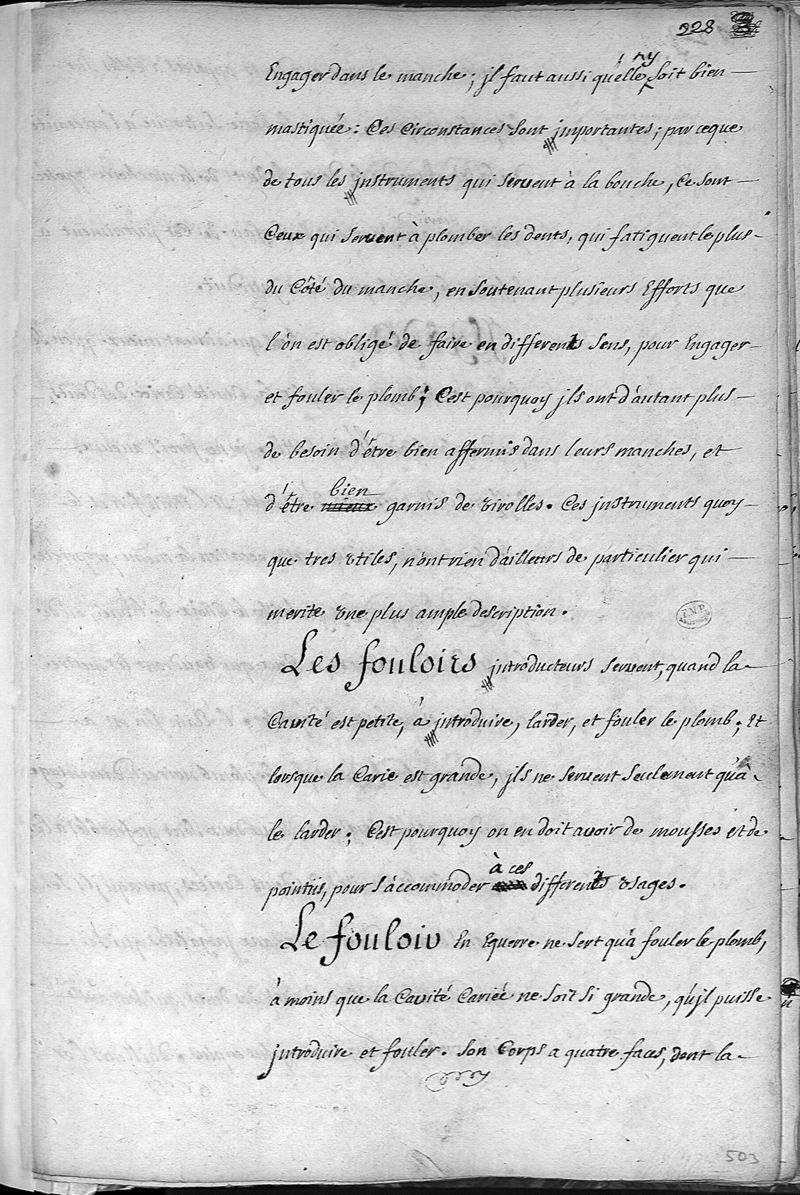 228
Engager dans le manche; il faut aussi qu'elle y soit bien
mastiquée: Ces Circonstances sont importantes; parceque
de tous les instruments qui servent à la bouche, Ce sont
Ceux qui servent à plomber les dents, qui fatiguent le plus
du Côté du manche, en soutenant plusieurs Efforts que
l'on est obligé de faire en differents sens, pour Engager
et fouler le plomb; C'est pourquoy ils ont d'autant plus
de besoin d'être bien affermis dans leurs manches, et
d'être bien garnis de virolles. Ces instruments quoy
que tres utiles, n'ont rien d'ailleurs de particulier qui
merite une plus ample description.
Les fouloirs introducteurs servent, quand la
Cavité est petite, à introduire, larder, et fouler le plomb; Et
lorsque la Carie est grande, ils ne servent seulement qu'à
le larder; C'est pourquoy on en doit avoir de mousses et de
pointus, pour s'accommoder à ces differents usages.
Le fouloir En Equerre ne sert qu'à fouler le plomb,
à moins que la Cavité Cariée ne soit si grande, qu'il puisse
introduire et fouler. Son Corps a quatre faces, dont la
503